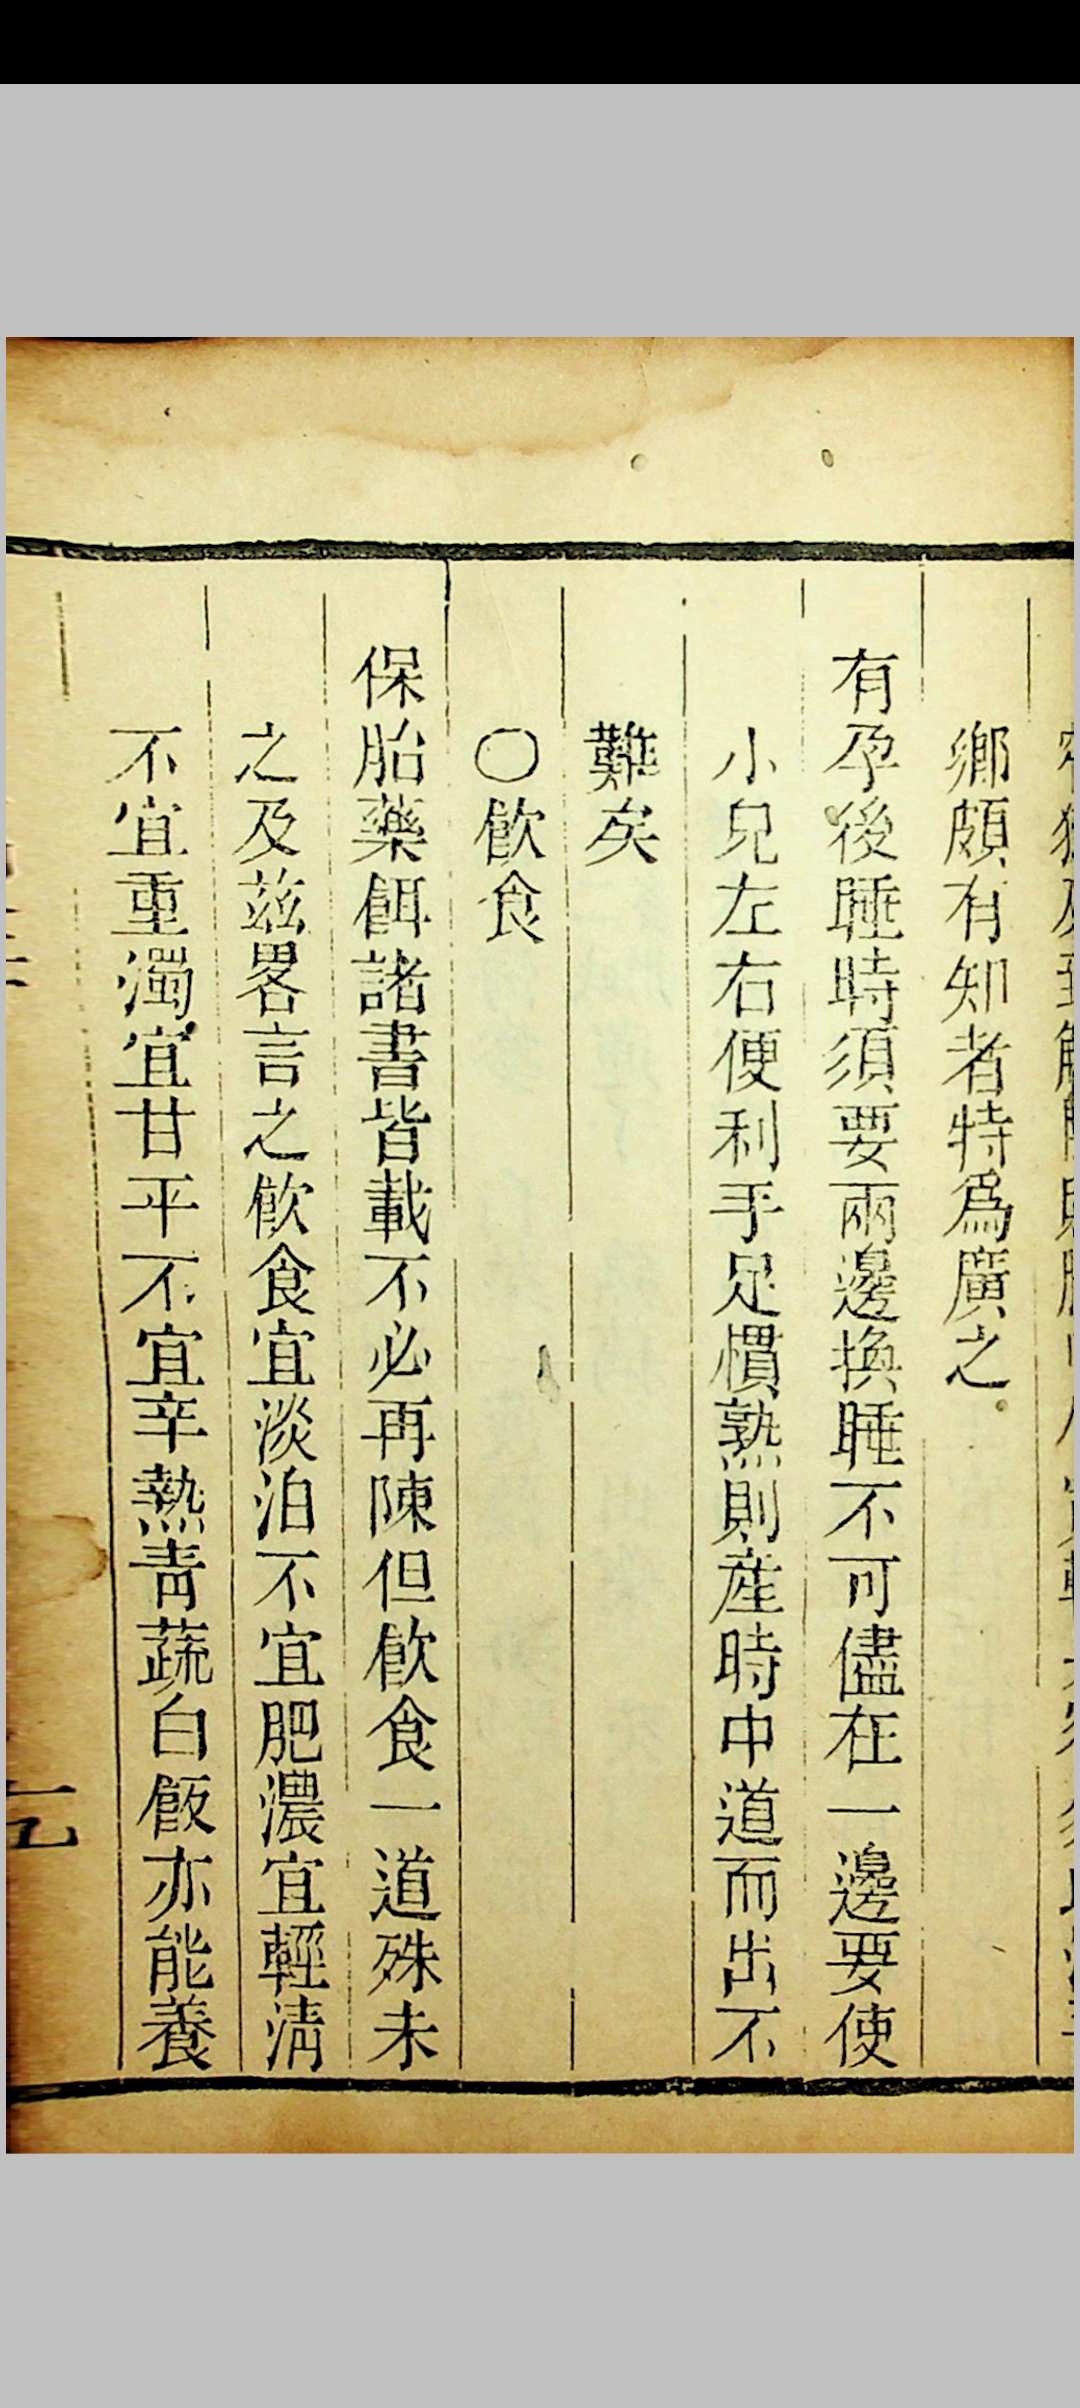 鄉頗有知者特爲廣之
有孕後睡時須要兩邊換睡不可儘在一邊要使
小兒左右便利手足慣熟則産時中道而出不
難矣
〇飲食
保胎藥餌諸書皆載不必再陳但飲食一道殊未
之及茲畧言之飲食宜淡泊不宜肥濃宜輕淸
不宜重濁宜甘平不宜辛熱靑蔬白飯亦能養